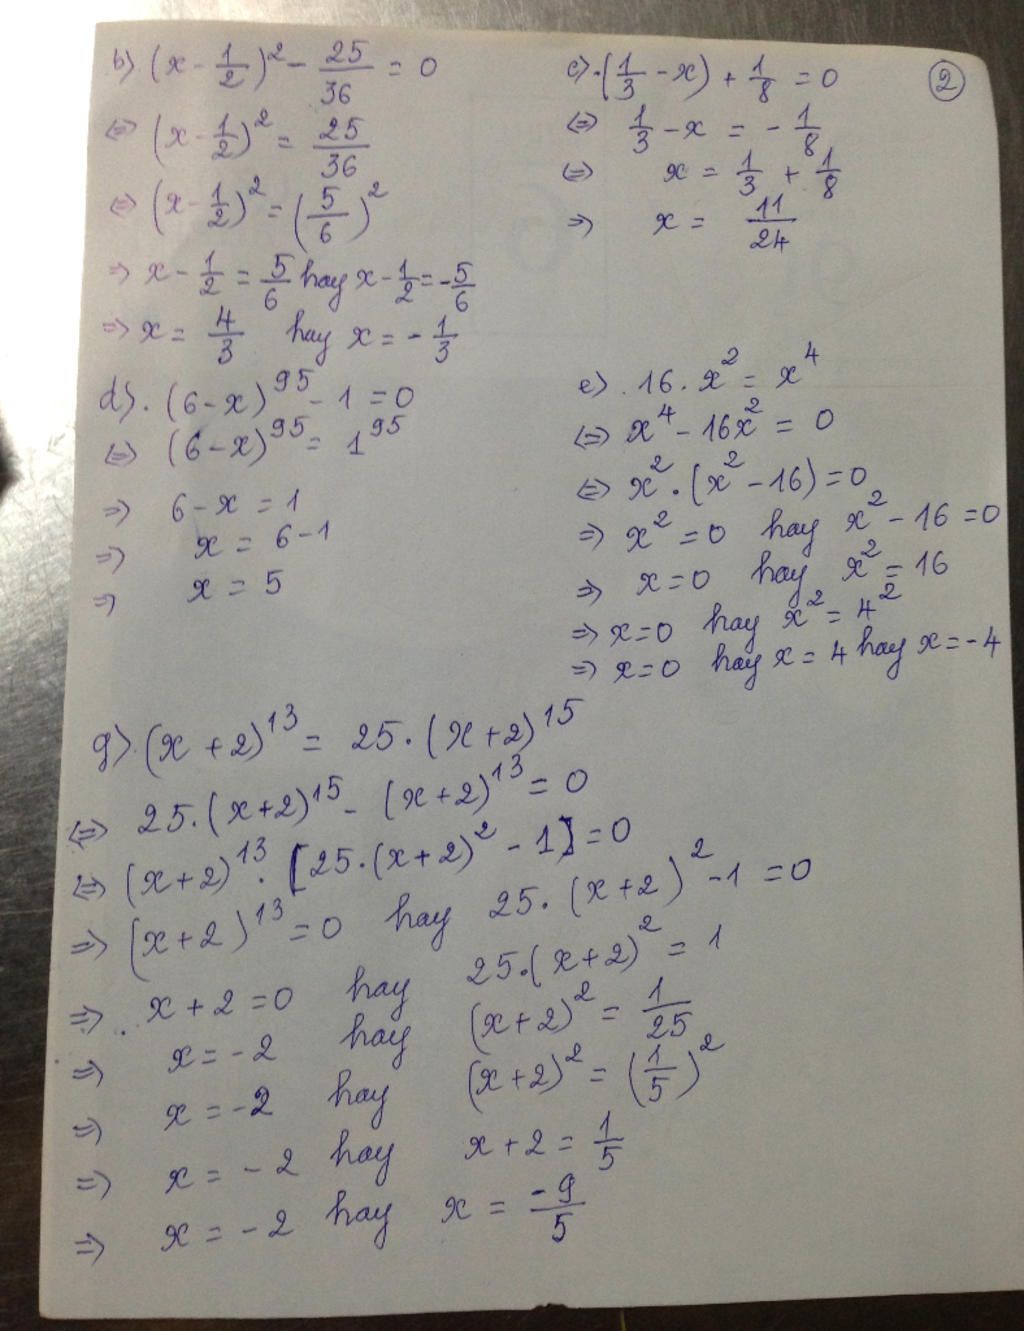 ②
b) (x - 1/2)² - 25/36 = 0
⇔ (x - 1/2)² = 25/36
⇔ (x - 1/2)² = (5/6)²
⇒ x - 1/2 = 5/6 hay x - 1/2 = -5/6
⇒ x = 4/3 hay x = -1/3
c) . (1/3 - x) + 1/8 = 0
⇔ 1/3 - x = - 1/8
⇔ x = 1/3 + 1/8
⇒ x = 11/24
d) . (6-x)⁹⁵ - 1 = 0
⇔ (6-x)⁹⁵ = 1⁹⁵
⇒ 6-x = 1
⇒ x = 6-1
⇒ x = 5
e) . 16 . x² = x⁴
⇔ x⁴ - 16x² = 0
⇔ x² . (x² - 16) = 0
⇒ x² = 0 hay x² - 16 = 0
⇒ x = 0 hay x² = 16
⇒ x = 0 hay x² = 4²
⇒ x = 0 hay x = 4 hay x = -4
g) . (x + 2)¹³ = 25 . (x+2)¹⁵
⇔ 25 . (x+2)¹⁵ - (x+2)¹³ = 0
⇔ (x+2)¹³ . [25 . (x+2)² - 1] = 0
⇒ (x+2)¹³ = 0 hay 25 . (x+2)² - 1 = 0
⇒ x + 2 = 0 hay 25 . (x+2)² = 1
⇒ x = -2 hay (x+2)² = 1/25
⇒ x = -2 hay (x+2)² = (1/5)²
⇒ x = -2 hay x + 2 = 1/5
⇒ x = -2 hay x = -9/5